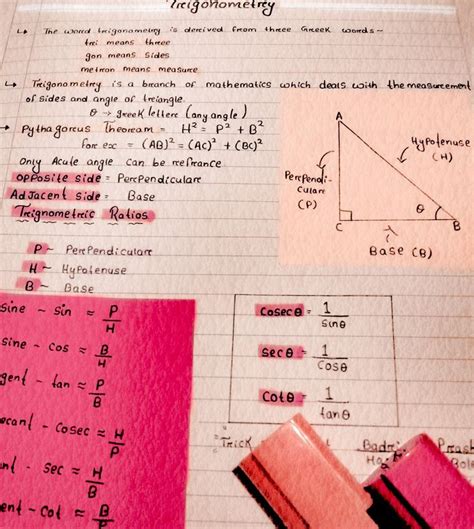 Trigonometry
↳ The word trigonometry is derived from three Greek words~
tri means three
gon means sides
metron means measure
↳ Trigonometry is a branch of mathematics which deals with the measurement
of sides and angle of triangle.
θ → greek letter (any angle)
→ Pythagorus Theoream = H² = P² + B²
For exe = (AB)² = (AC)² + (BC)²
Only Acute angle can be refrance
opposite side = PerPendiculare
AdJacent side = Base
Trignometric Ratios
A
Hypotenuse
(H)
PerPendi-
culare
(P)
θ
C
B
Base (B)
P ~ PerPendiculare
H ~ Hypotenuse
B ~ Base
sine - sin ≈ P/H
sine - cos ≈ B/H
gent - tan ≈ P/B
ecant - cosec ≈ H/P
nt - sec ≈ H/B
ent - cot ≈ B/P
Cosec θ = 1/sinθ
sec θ = 1/cosθ
Cot θ = 1/tanθ
Trick
Badri